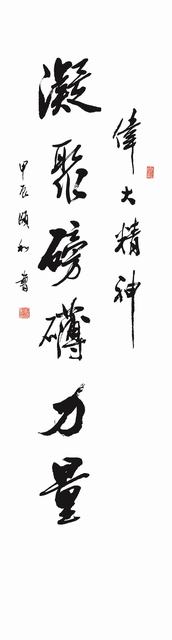 偉大精神
凝聚磅礴力量
甲辰頌和書